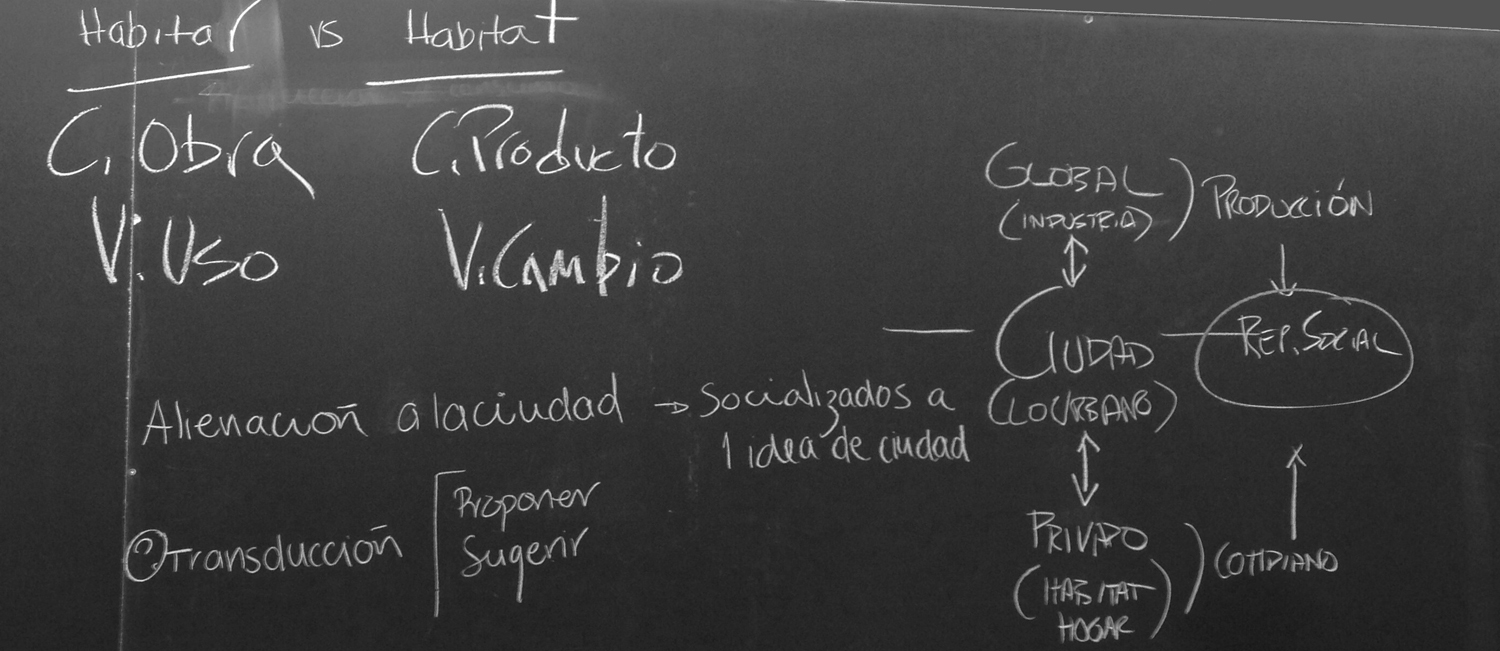 Habitar vs Habitat
C. Obra C. Producto
V. Uso V. Cambio
Alienación a la ciudad → Socializados a
1 idea de ciudad
? Transducción
Proponer
Sugerir
GLOBAL
(INDUSTRIA)
PRODUCCIÓN
CIUDAD
(LO URBANO)
REP. SOCIAL
PRIVADO
(HABITAT
HOGAR)
COTIDIANO